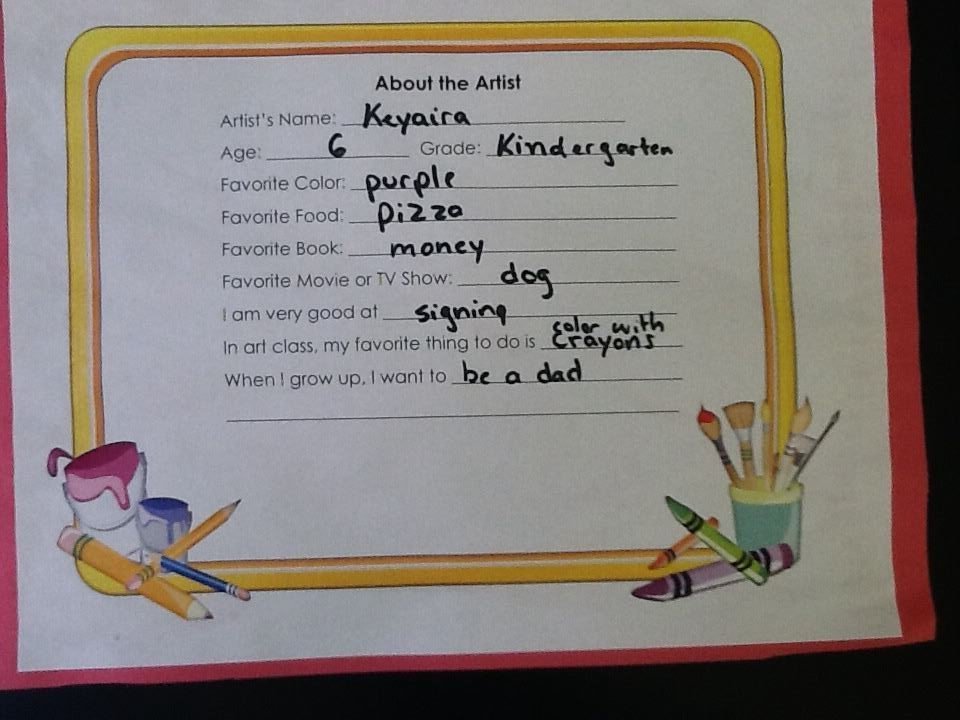 About the Artist
Artist's Name: Keyaira
Age: 6 Grade: Kindergarten
Favorite Color: purple
Favorite Food: pizza
Favorite Book: money
Favorite Movie or TV Show: dog
I am very good at signing
In art class, my favorite thing to do is color with crayons
When I grow up, I want to be a dad